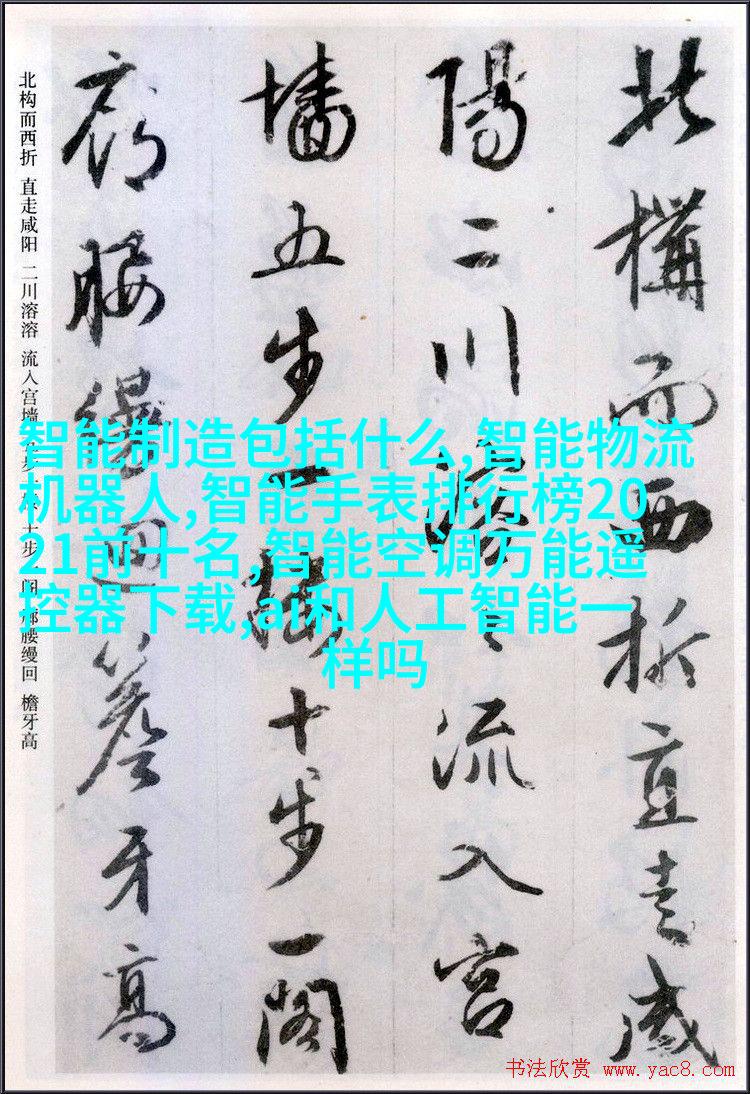 北構而西折直走咸
陽二川溶々流入宫
墙五步一樓十步一閣
廊腰缦迴簷牙高
北构而西折 直走咸阳 二川溶溶 流入宫墙 步 十步 阁 廊腰缦回 檐牙高
智能制造包括什么,智能物流
机器人,智能手表排行榜20
21前十名,智能空调万能遥
控器下载,ai和人工智能一
样吗
书法欣赏 www.yac8.com